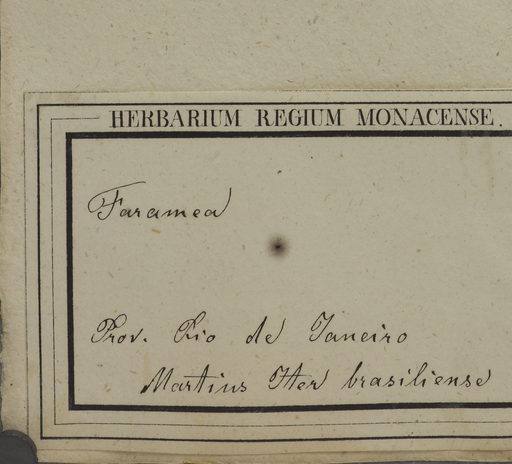 HERBARIUM REGIUM MONACENSE.
Faramea
Prov. Rio de Janeiro
Martius Iter brasiliense